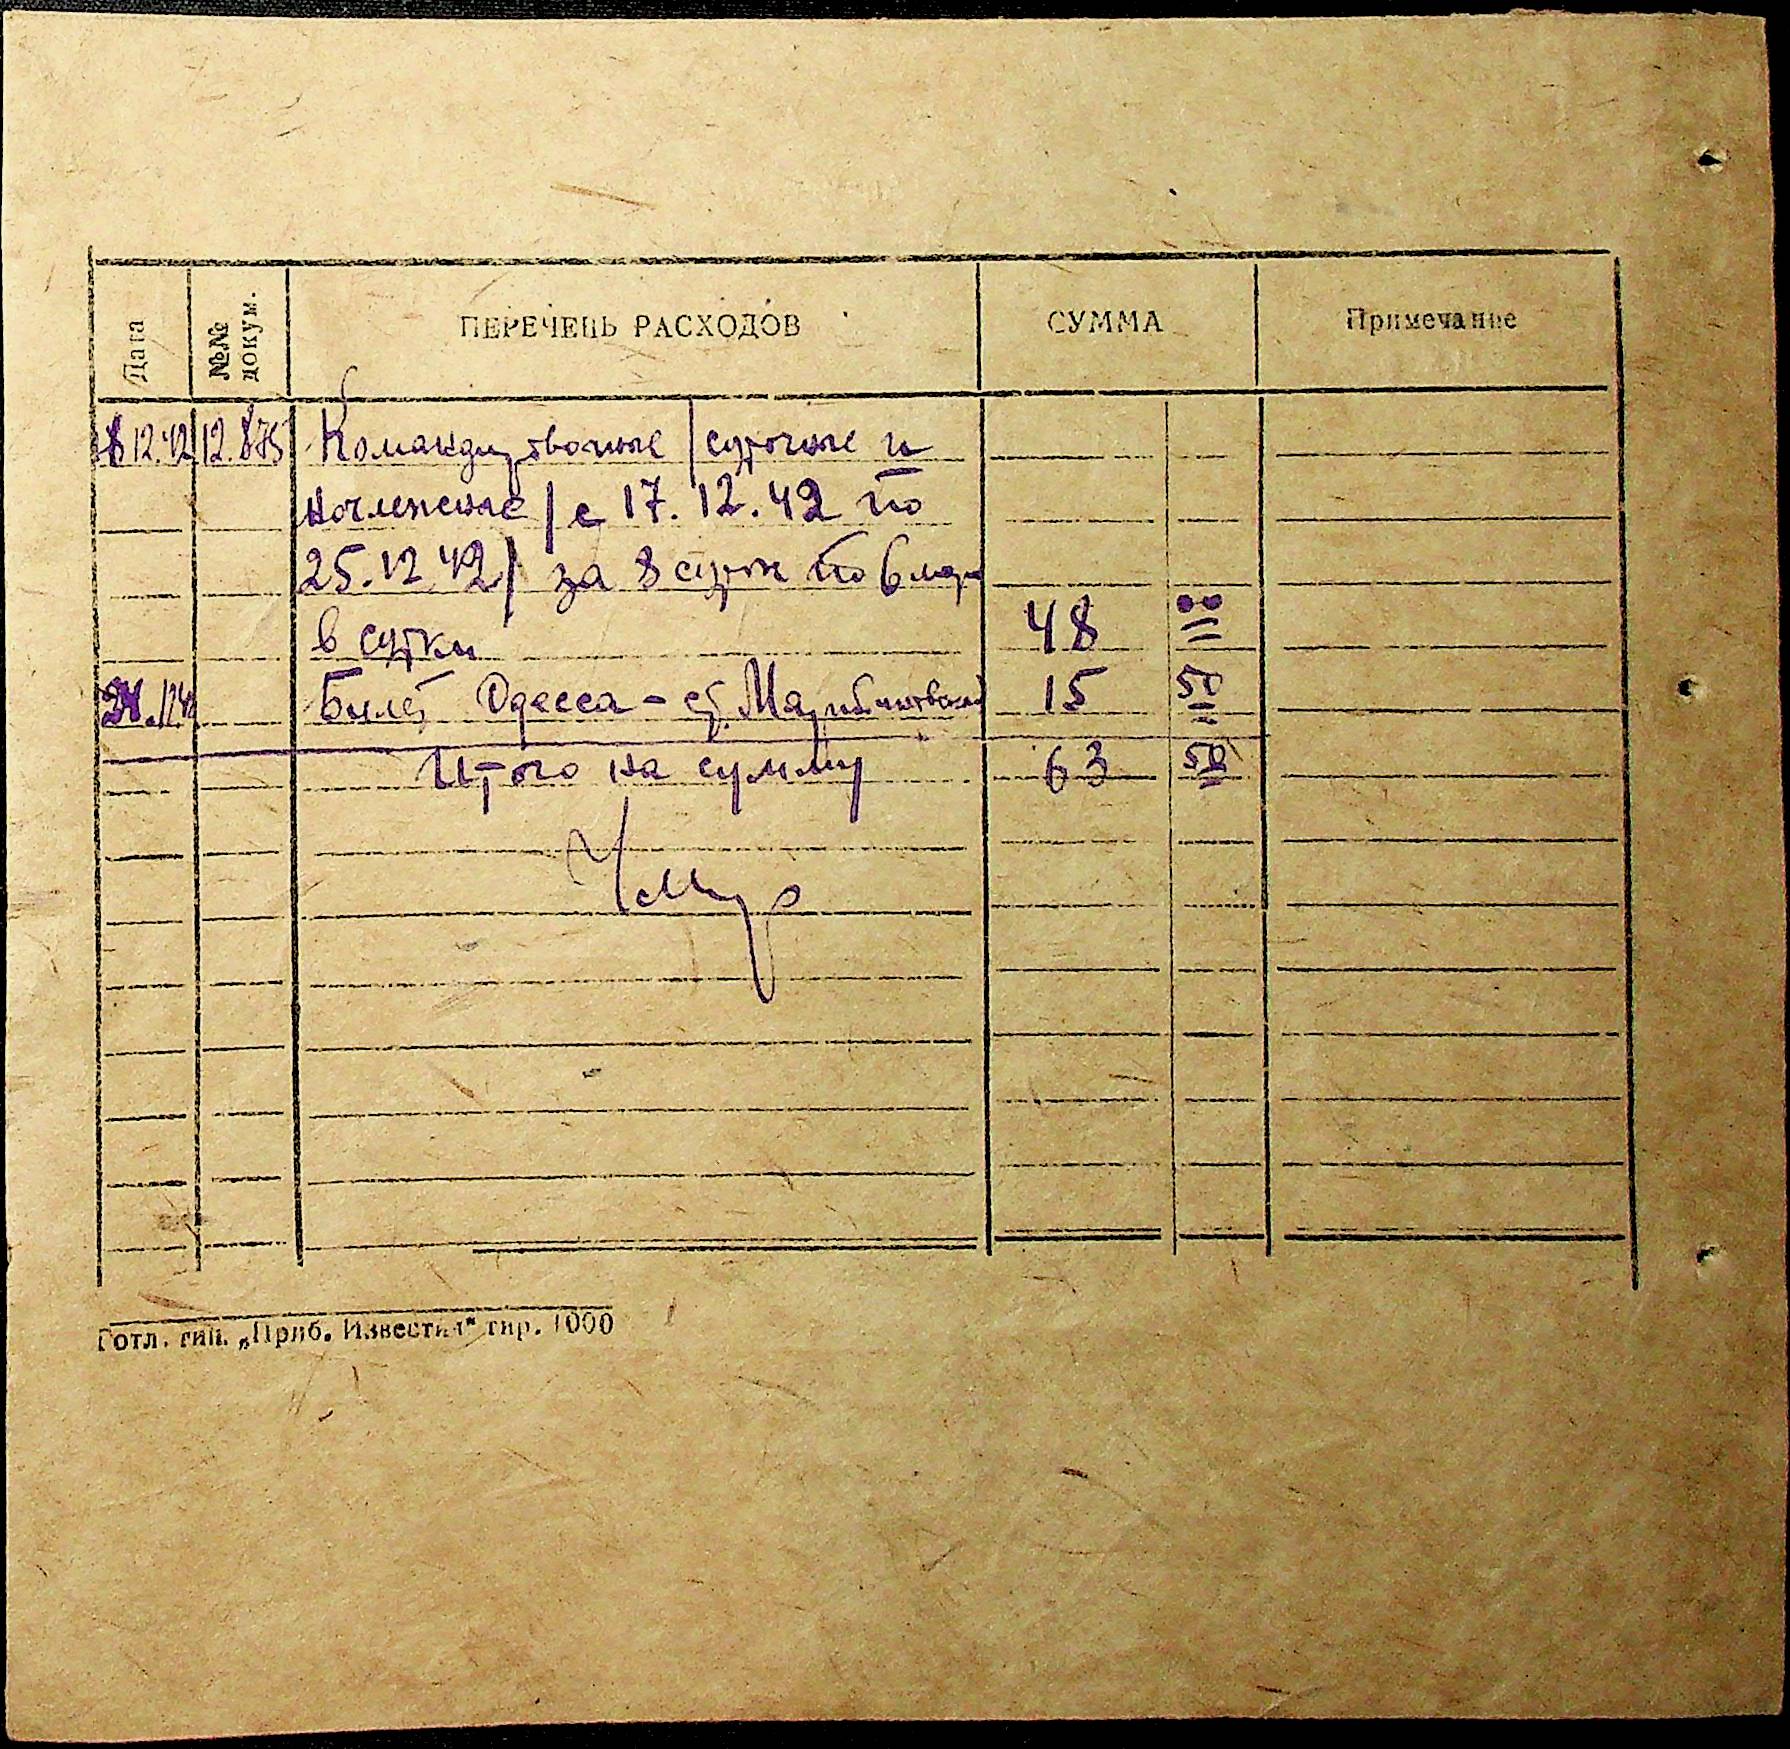 Дата №№ докум. ПЕРЕЧЕНЬ РАСХОДОВ СУММА Примечание
12.42 12.875 Командировочные / суточные и
ночлежные / с 17.12.42 по
25.12.42 / за 8 суток по 6 марк
в сутки 48
Билет Одесса – ст. 15 50
Итого на сумму 63 50
Готл. тип. „Приб. Известия" тир. 1000